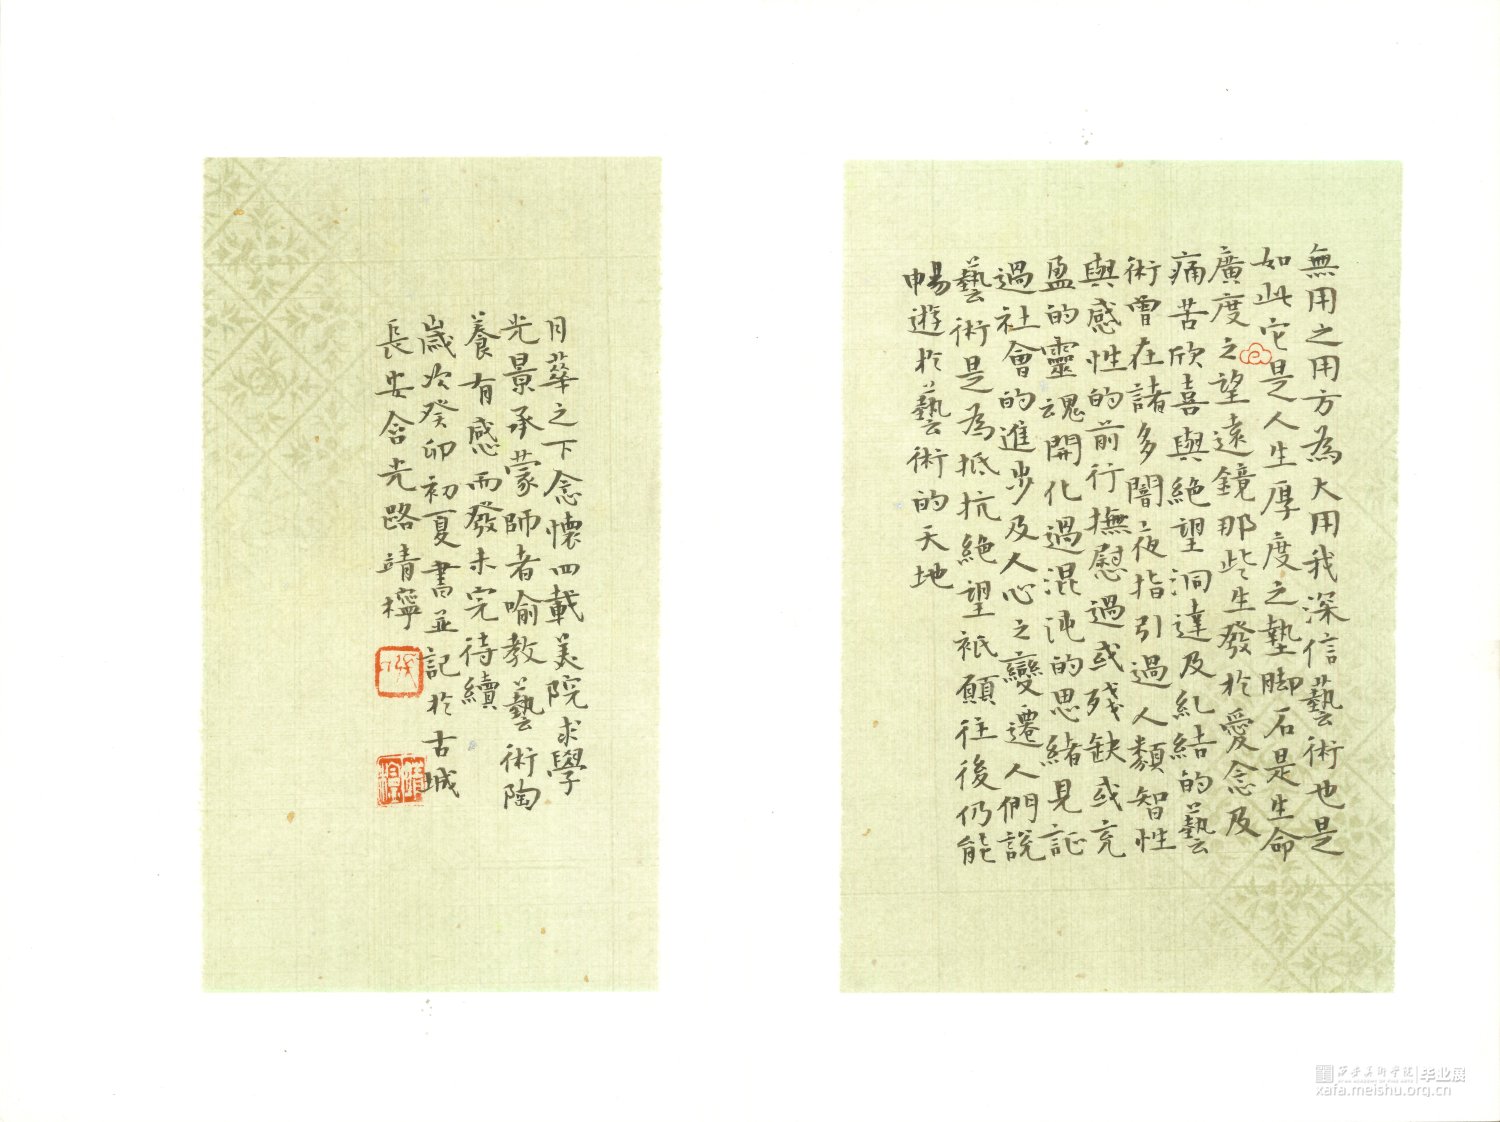 無用之用方為大用我深信藝術也是
如此它是人生厚度之墊脚石是生命
廣度之望遠鏡那些生發於愛念及
痛苦欣喜與絶望洞達及糺結的藝
術曾在諸多闇夜指引過人類智性
與感性的前行撫慰過或殘缺或充
盈的靈魂開化過混沌的思緒見証
過社會的進步及人心之變遷人們說
藝術是為抵抗絶望祇願往後仍能
暢遊於藝術的天地
月華之下念懷四載美院求學
光景承蒙師者喻教藝術陶
養有感而發未完待續
歲次癸卯初夏書並記於古城
長安含光路靖檸
靖檸
西安美術学院 毕业展
xafa.meishu.org.cn